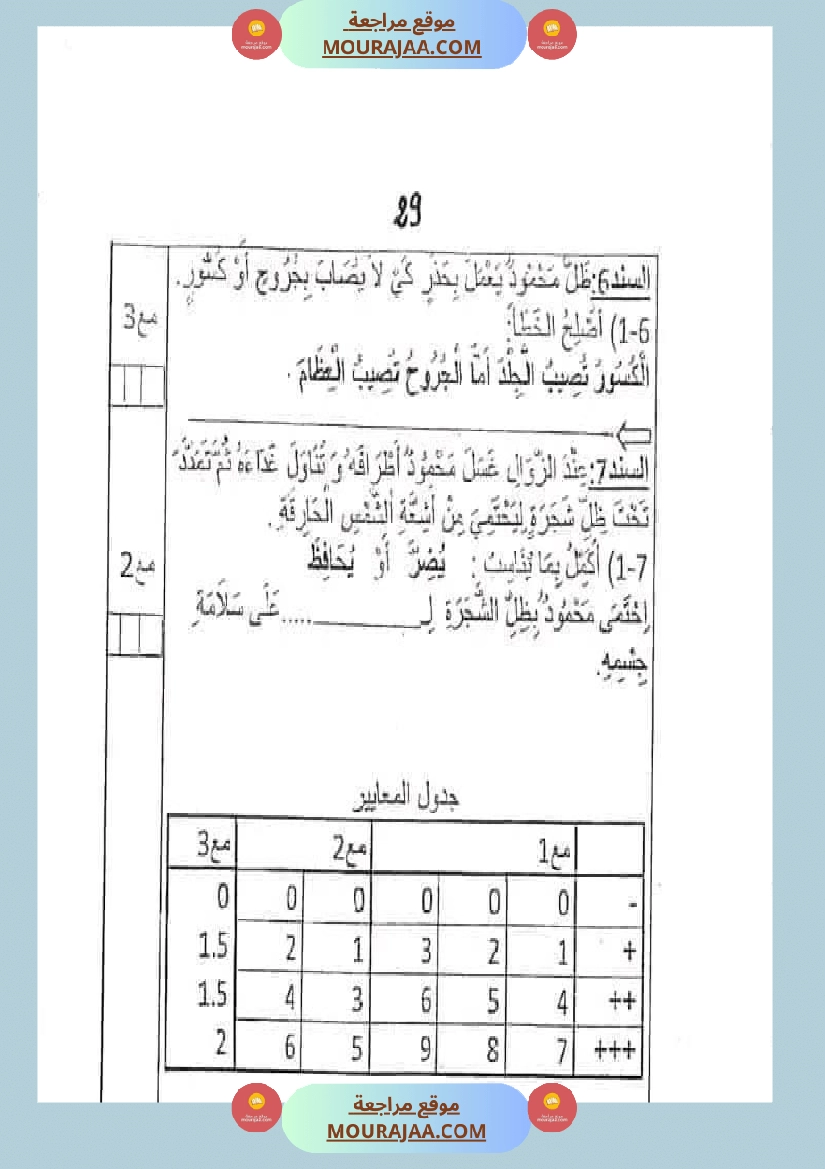 موقع مراجعة
MOURAJAA.COM
29
السند6:ظَلَّ مَحْمُودٌ يَعْمَلُ بِحَذَرٍ كَيْ لاَ يُصَابَ بِجُرُوحٍ أَوْ كُسُورٍ.
مع3
1-6) أُصْلِحُ الخَطَأَ:
الْكُسُورُ تُصِيبُ الْجِلْدَ أَمَّا الْجُرُوحُ تُصِيبُ الْعِظَامَ .
السند7:عِنْدَ الزَّوَالِ غَسَلَ مَحْمُودٌ أَطْرَافَهُ وَ تَنَاوَلَ غَدَاءَهُ ثُمَّ تَمَدَّدَ
تَحْتَ ظِلِّ شَجَرَةٍ لِيَحْتَمِيَ مِنْ أَشِعَّةِ الشَّمْسِ الْحَارِقَةِ .
مع2
1-7) أُكَمِّلُ بِمَا يُنَاسِبُ : يُضِرَّ أَوْ يُحَافِظَ
اِحْتَمَى مَحْمُودٌ بِظِلِّ الشَّجَرَةِ لِـ__________..... عَلَى سَلاَمَةِ
جِسْمِهِ.
جدول المعايير
مع1 مع2 مع3
- 0 0 0 0 0 0
+ 1 2 3 1 2 1.5
++ 4 5 6 3 4 1.5
+++ 7 8 9 5 6 2
موقع مراجعة
MOURAJAA.COM